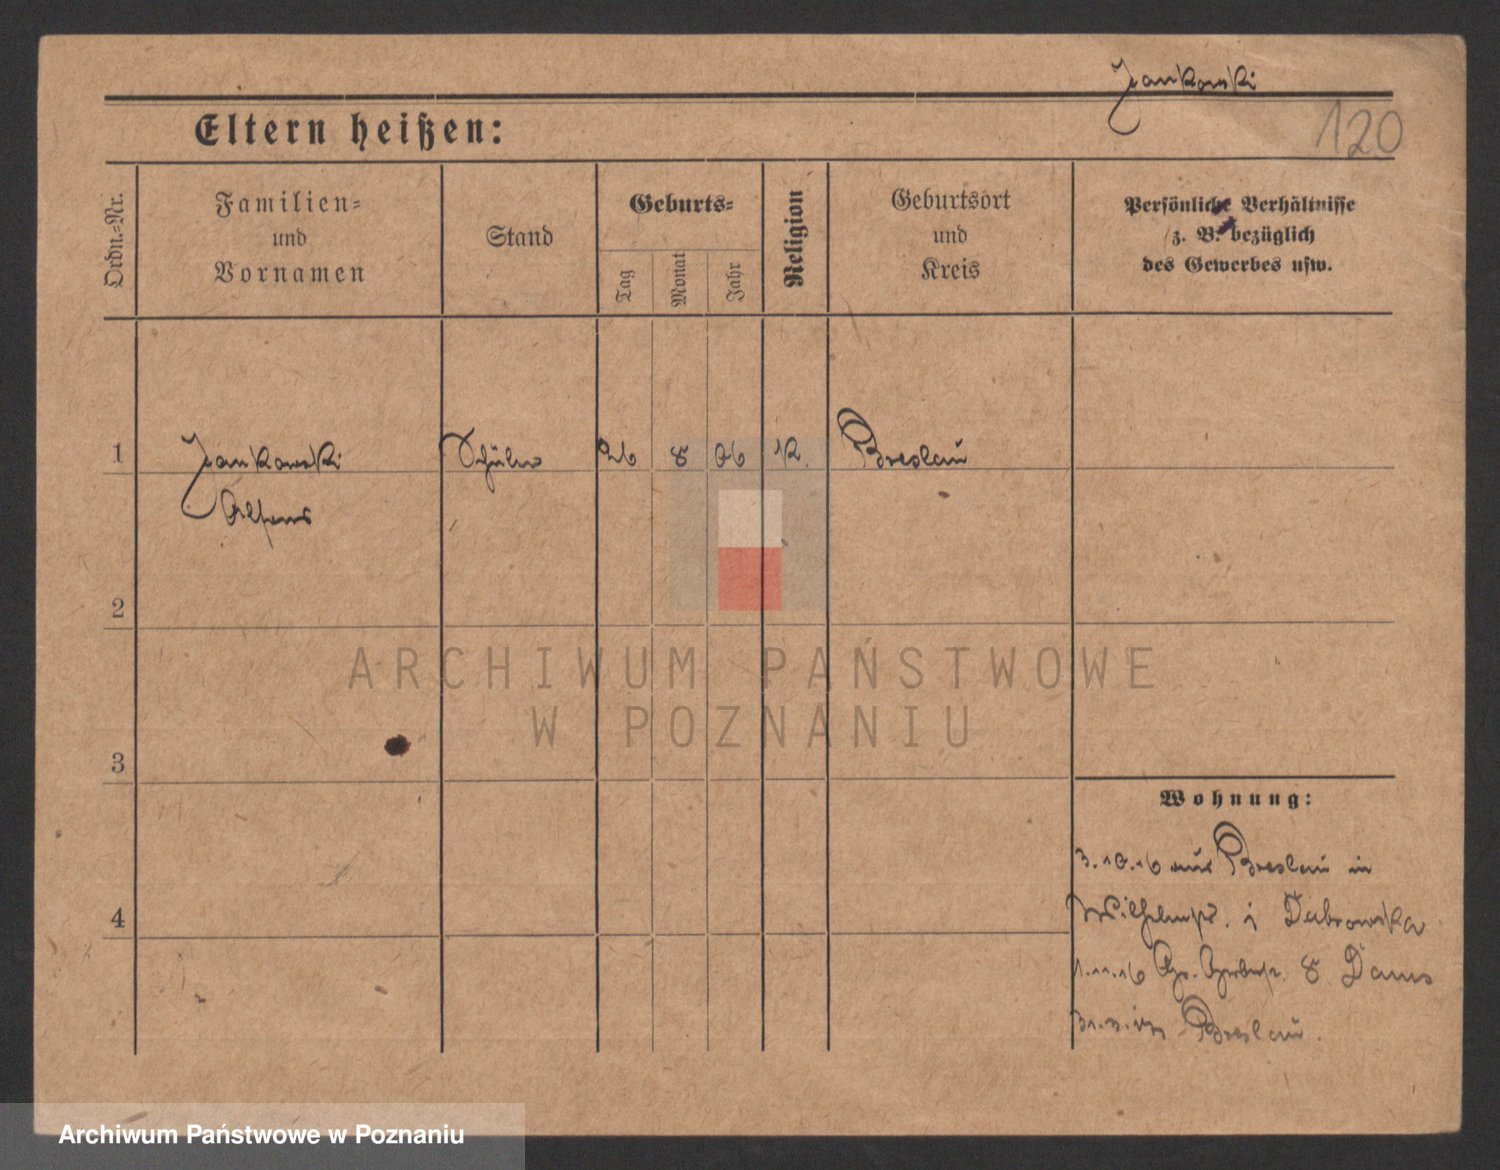 Jankowski
120
Eltern heißen:
Ordn.-Nr.
Familien-
und
Vornamen
Stand
Geburts-
Tag
Monat
Jahr
Religion
Geburtsort
und
Kreis
Persönliche Verhältnisse
z. B. bezüglich
des Gewerbes usw.
1 Jankowski Schüler 26 8 06 K. Breslau
Alfons
2
ARCHIWUM PAŃSTWOWE
W POZNANIU
3
Wohnung:
3.10.16 aus Breslau in
Wilhelmstr. j Dabrowska
4
1.11.16 Gr. Gerberstr. 8 Dams
Breslau.
Archiwum Państwowe w Poznaniu